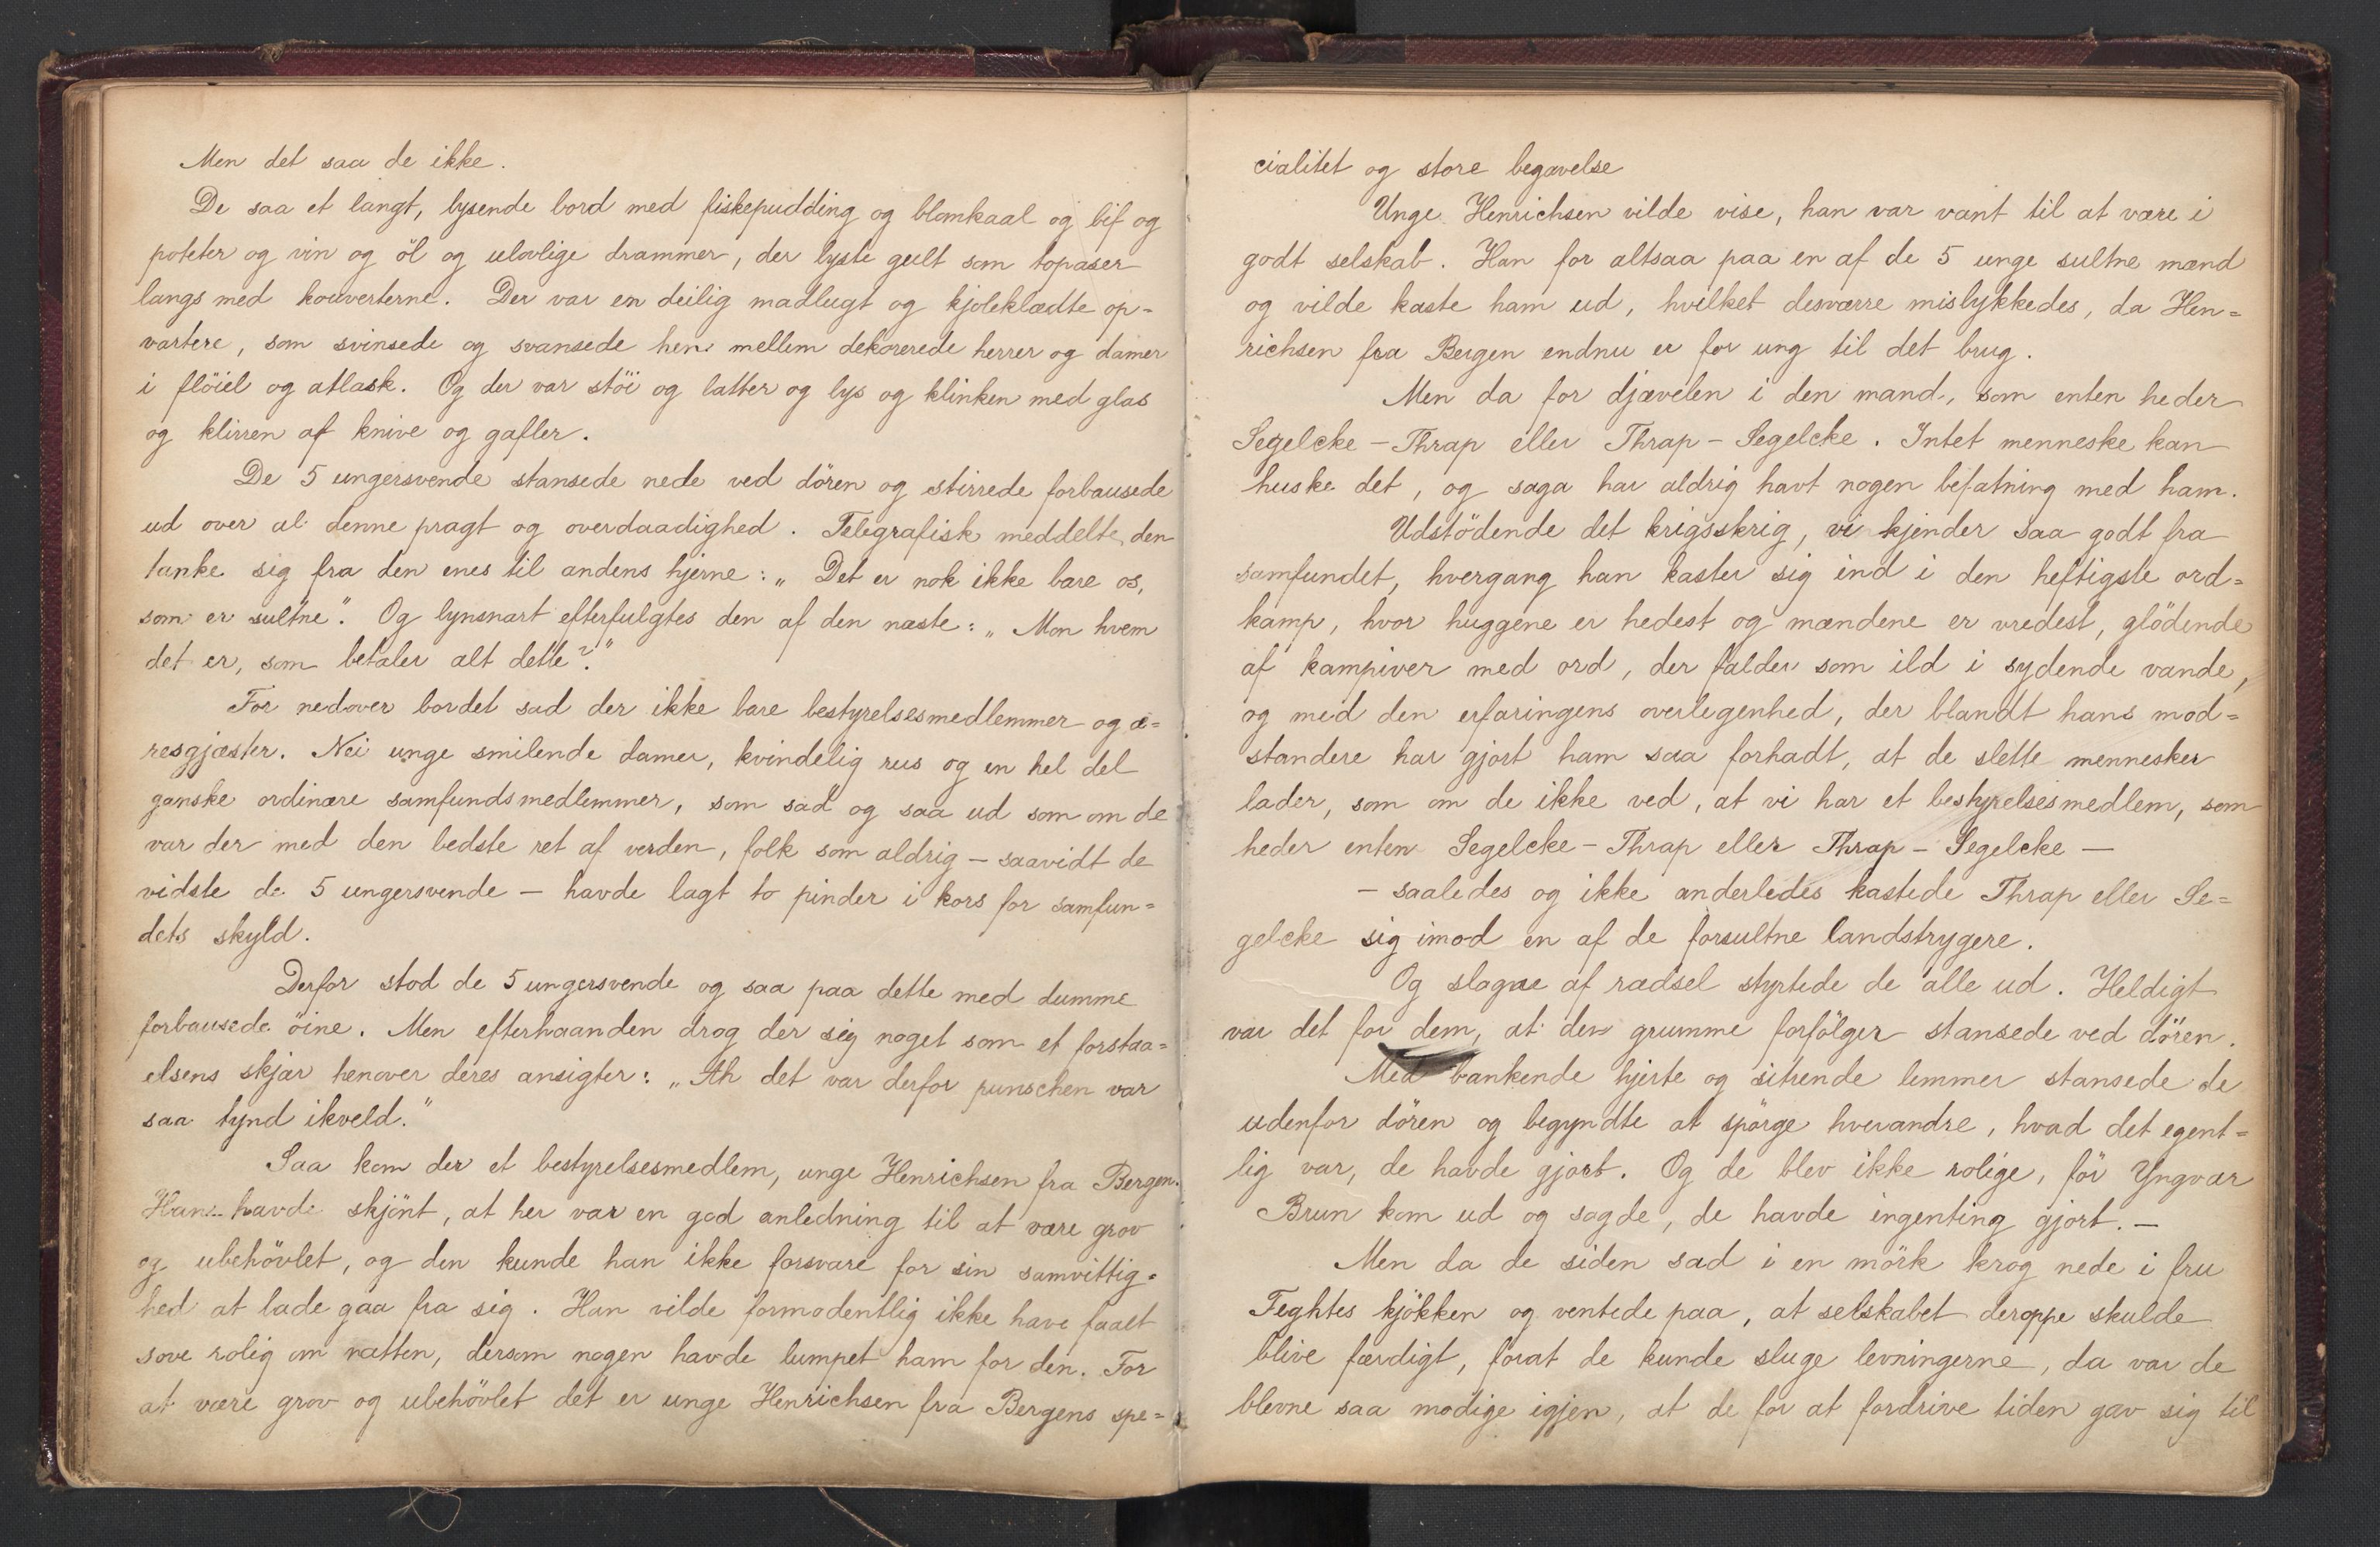 Men det saa de ikke.
De saa et langt, lysende bord med fiskepudding og blomkaal og bif og
poteter og vin og öl og ulovlige drammer, der lyste gult som topaser
langs med kouverterne. Der var en deilig madlugt og kjoleklædte op=
vartere, som svinsede og svansede hen mellem dekorerede herrer og damer
i flöiel og atlask. Og der var stöi og latter og lys og klinken med glas
og klirren af knive og gafler.
De 5 ungersvende stansede nede ved dören og stirrede forbausede
ud over al denne pragt og overdaadighed. Telegrafisk meddelte den
tanke sig fra den enes til andens hjerne: „Det er nok ikke bare os,
som er sultne". Og lynsnart efterfulgtes den af den næste: „Mon hvem
det er, som betaler alt dette?"
For nedover bordet sad der ikke bare bestyrelsesmedlemmer og æ=
resgjæster. Nei unge smilende damer, kvindelig rus og en hel del
ganske ordinære samfundsmedlemmer, som sad og saa ud som om de
var der med den bedste ret af verden, folk som aldrig – saavidt de
vidste de 5 ungersvende – havde lagt to pinder i kors for samfun=
dets skyld.
Derfor stod de 5 ungersvende og saa paa dette med dumme
forbausede öine. Men efterhaanden drog der sig noget som et forstaa=
elsens skjær henover deres ansigter: „Ah det var derfor punschen var
saa tynd ikveld."
Saa kom der et bestyrelsesmedlem, unge Henrichsen fra Bergen.
Han havde skjönt, at her var en god anledning til at være grov
og ubehövlet, og den kunde han ikke forsvare for sin samvittig=
hed at lade gaa fra sig. Han vilde formodentlig ikke have faaet
sove rolig om natten, dersom nogen havde lumpet ham for den. For
at være grov og ubehövlet det er unge Henrichsen fra Bergens spe=
cialitet og store begavelse
Unge Henrichsen vilde vise, han var vant til at være i
godt selskab. Han for altsaa paa en af de 5 unge sultne mænd
og vilde kaste ham ud, hvilket desværre mislykkedes, da Hen=
richsen fra Bergen endnu er for ung til det brug.
Men da for djævelen i den mand, som enten heder
Segelcke – Thrap eller Thrap – Segelcke. Intet menneske kan
huske det, og saga har aldrig havt nogen befatning med ham.
Udstödende det krigsskrig, vi kjender saa godt fra
samfundet, hvergang han kaster sig ind i den heftigste ord=
kamp, hvor huggene er hedest og mændene er vredest, glödende
af kampiver med ord, der falder som ild i sydende vande,
og med den erfaringens overlegenhed, der blandt hans mod=
standere har gjort ham saa forhadt, at de slette mennesker
lader, som om de ikke ved, at vi har et bestyrelsesmedlem, som
heder enten Segelcke – Thrap eller Thrap – Segelcke —
– saaledes og ikke anderledes kastede Thrap eller Se=
gelcke sig imod en af de forsultne landstrygere.
Og slagne af rædsel styrtede de alle ud. Heldigt
var det for dem, at den grumme forfölger stansede ved dören.
Med bankende hjerte og sitrende lemmer stansede de
udenfor dören og begyndte at spörge hverandre, hvad det egent=
lig var, de havde gjort. Og de blev ikke rolige, för Yngvar
Brun kom ud og sagde, de havde ingenting gjort. –
Men da de siden sad i en mörk krog nede i fru
Feghtes kjökken og ventede paa, at selskabet deroppe skulde
blive færdigt, forat de kunde sluge levningerne, da var de
blevne saa modige igjen, at de for at fordrive tiden gav sig til